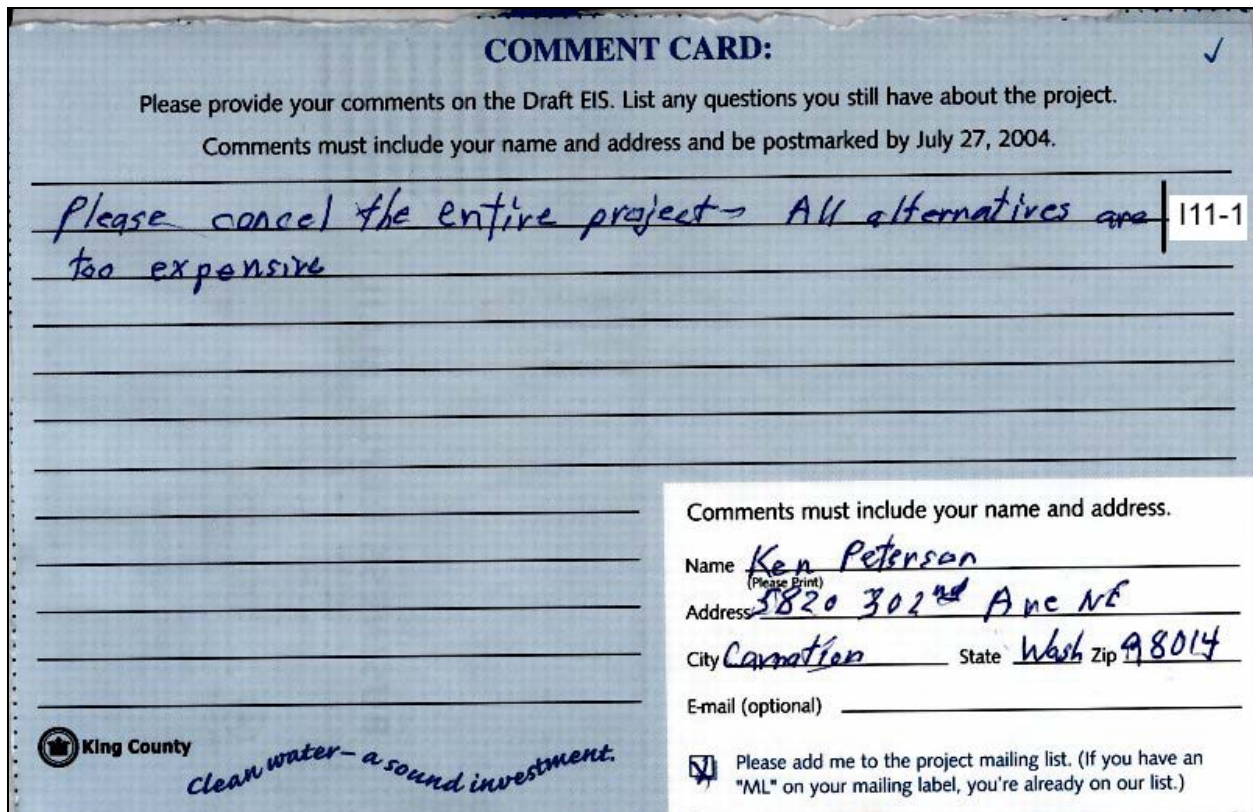 COMMENT CARD:
Please provide your comments on the Draft EIS. List any questions you still have about the project.
Comments must include your name and address and be postmarked by July 27, 2004.
Please cancel the entire project- All alternatives are
I11-1
too expensive
Comments must include your name and address.
Name Ken Peterson
(Please Print)
Address 5820 302nd Ave NE
City Carnation State Wash Zip 98014
E-mail (optional)
King County
Clean water- a sound investment.
Please add me to the project mailing list. (If you have an
"ML" on your mailing label, you're already on our list.)